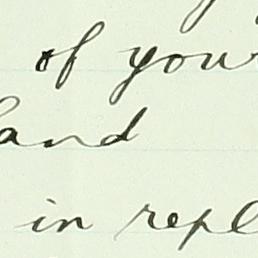 of your
and
in repl